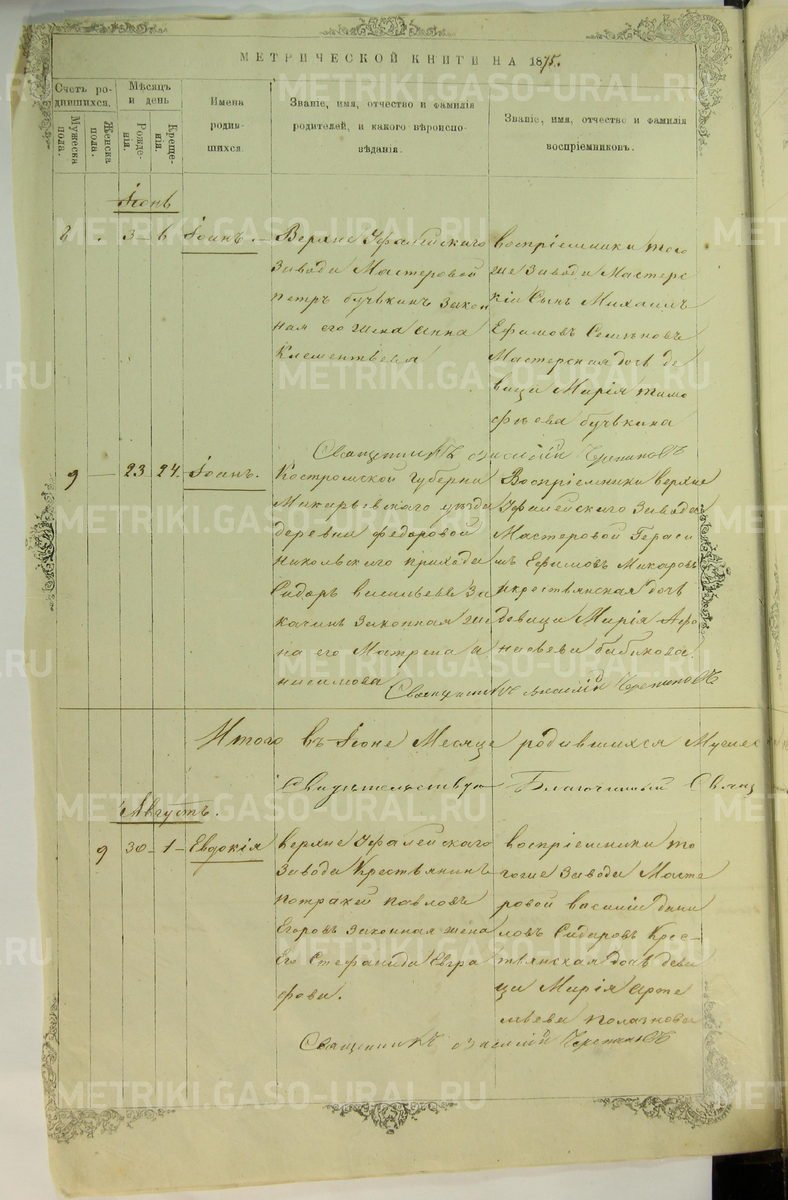 МЕТРИЧЕСКОЙ КНИГИ НА 1875.
Счетъ ро-
дившихся.
Мужеска
пола.
Женска
пола.
Мѣсяцъ
и день
Рожде-
нія.
Креще-
нія.
Имена
родив-
шихся.
Званіе, имя, отчество и фамилія
родителей, и какого вѣроиспо-
вѣданія.
Званіе, имя, отчество и фамилія
воспріемниковъ.
Іюнь
8 3 6 Іоаннъ.
Верхне Уфалейскаго
Завода Мастеровой
петръ бучкинъ Закон
ная его жена анна
Клементьева
воспріемники того
же Завода Мастерс
кій Сынъ Михаилъ
Ефимовъ
Мастерская дочь де
вица Марія тимо
фѣева бучкина
Священникъ Василій Черепановъ
9 23 24 Іоанъ.
Костромской Губерни
Макарьевскаго уезда
деревни Федоровой
никольскаго прихода
Сидоръ васильевъ За
качинъ Законная же
на его Матрена а
нисимова
Воспріемники верхне
Уфалейскаго Завода
Мастеровой Гераси
мъ Ефимовъ Макаровъ
икрестьянская дочь
девица Марія Афо
насьева бабикова.
Священникъ Василій Черепановъ
Итого въ Іюне Месяце родившихся Мужес
Свидетельствую Благочинный Свящ
Августъ.
9 30 1 Евдокія
верхне Уфалейскаго
Завода Крестьянинъ
потракей павловъ
Егоровъ Законная жена
Его Стефанида Евгра
фова.
воспріемники то
гоже Завода Масте
ровой василій дани
ловъ Сидоровъ Крес-
тьянская дочь деви
ца Марія арте
мьева
Священникъ Василій Черепановъ
METRIKI.GASO-URAL.RU